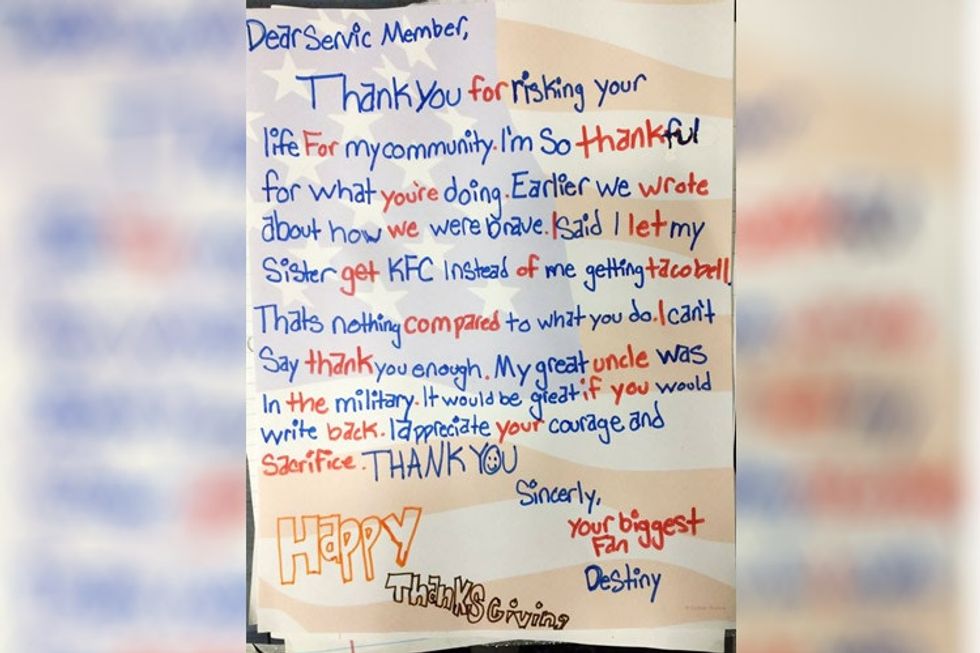 Dear Servic Member,
Thank you for risking your
life For my community. I'm So thankful
for what you're doing. Earlier we wrote
about how we were brave. I Said I let my
Sister get KFC Instead of me getting taco bell.
Thats nothing compared to what you do. I can't
Say thank you enough. My great uncle was
In the military. It would be great if you would
write back. I appreciate your courage and
Sacrifice. THANK YOU
Sincerly,
Your biggest
Fan
Destiny
Happy
Thanks Giving